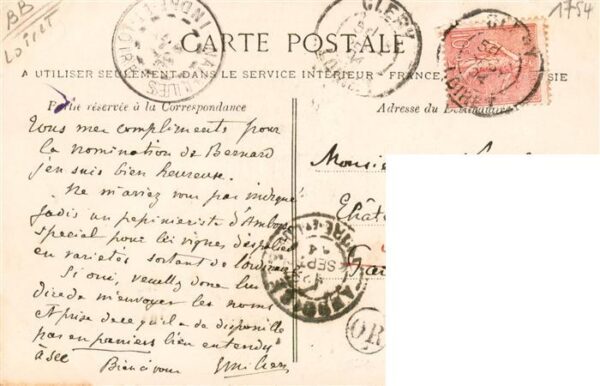 BB
Loiret
1754
CARTE POSTALE
A UTILISER SEULEMENT DANS LE SERVICE INTÉRIEUR - FRANCE,
Partie réservée à la Correspondance
Adresse du Destinataire
Tous mes compliments pour
la nomination de Bernard
j'en suis bien heureuse.
Ne m'aviez vous pas indiqué
jadis un pepinieriste d'Amboise
special pour les vignes
en varietés sortant de
Si oui, veuillez donc lui
dire de m'envoyer les noms
et prise de ce qu'il a de disponible
pas en paniers bien entendu
à sec
Bien à vous
Monsie
Chât
CLERY
CLERY
LOIRET
AMBOISE
SEPT
INDRE-ET-LOIRE
OR